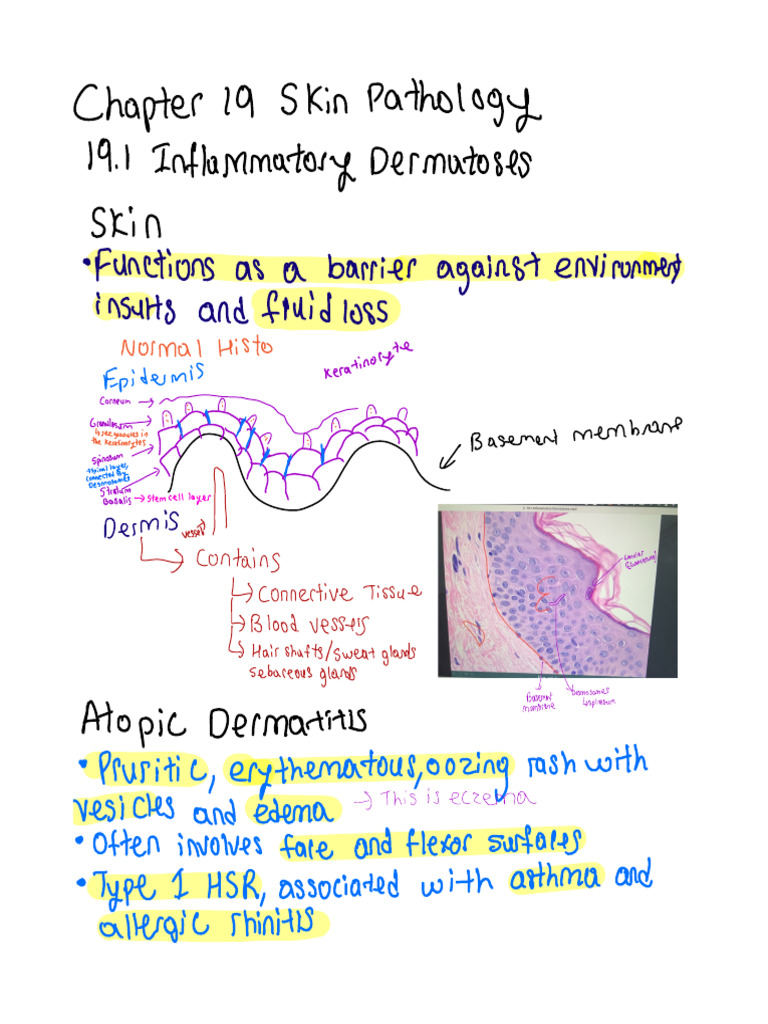 Chapter 19 Skin Pathology
19.1 Inflammatory Dermatoses
Skin
• Functions as a barrier against environment
insults and fluid loss
Normal Histo
Epidermis
Keratinocyte
Corneum →
Granulosum
in
the keratinocytes
Spinosum
connected by
Desmosomes
Stratum
Basalis → Stem cell layer
Basement membrane
Dermis
vessel
Contains
→ Connective Tissue
→ Blood vessels
→ Hair shafts/sweat glands
sebaceous glands
Basement
membrane
Desmosomes
Atopic Dermatitis
• Pruritic, erythematous, oozing rash with
vesicles and edema → This is eczema
• Often involves face and flexor surfaces
• Type 1 HSR, associated with asthma and
allergic rhinitis